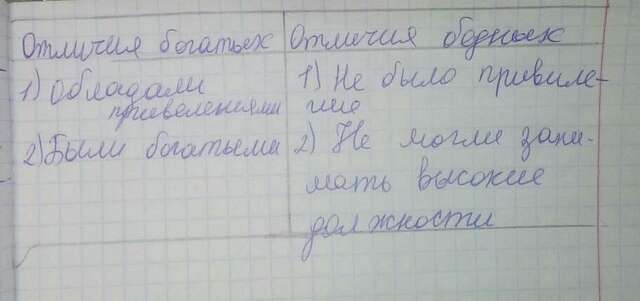 Отличия богатых
1) Обладали
привелениями
2) Были богатыми
Отличия бедных
1) Не было привиле-
гие
2) Не могли зани-
мать высокие
должности